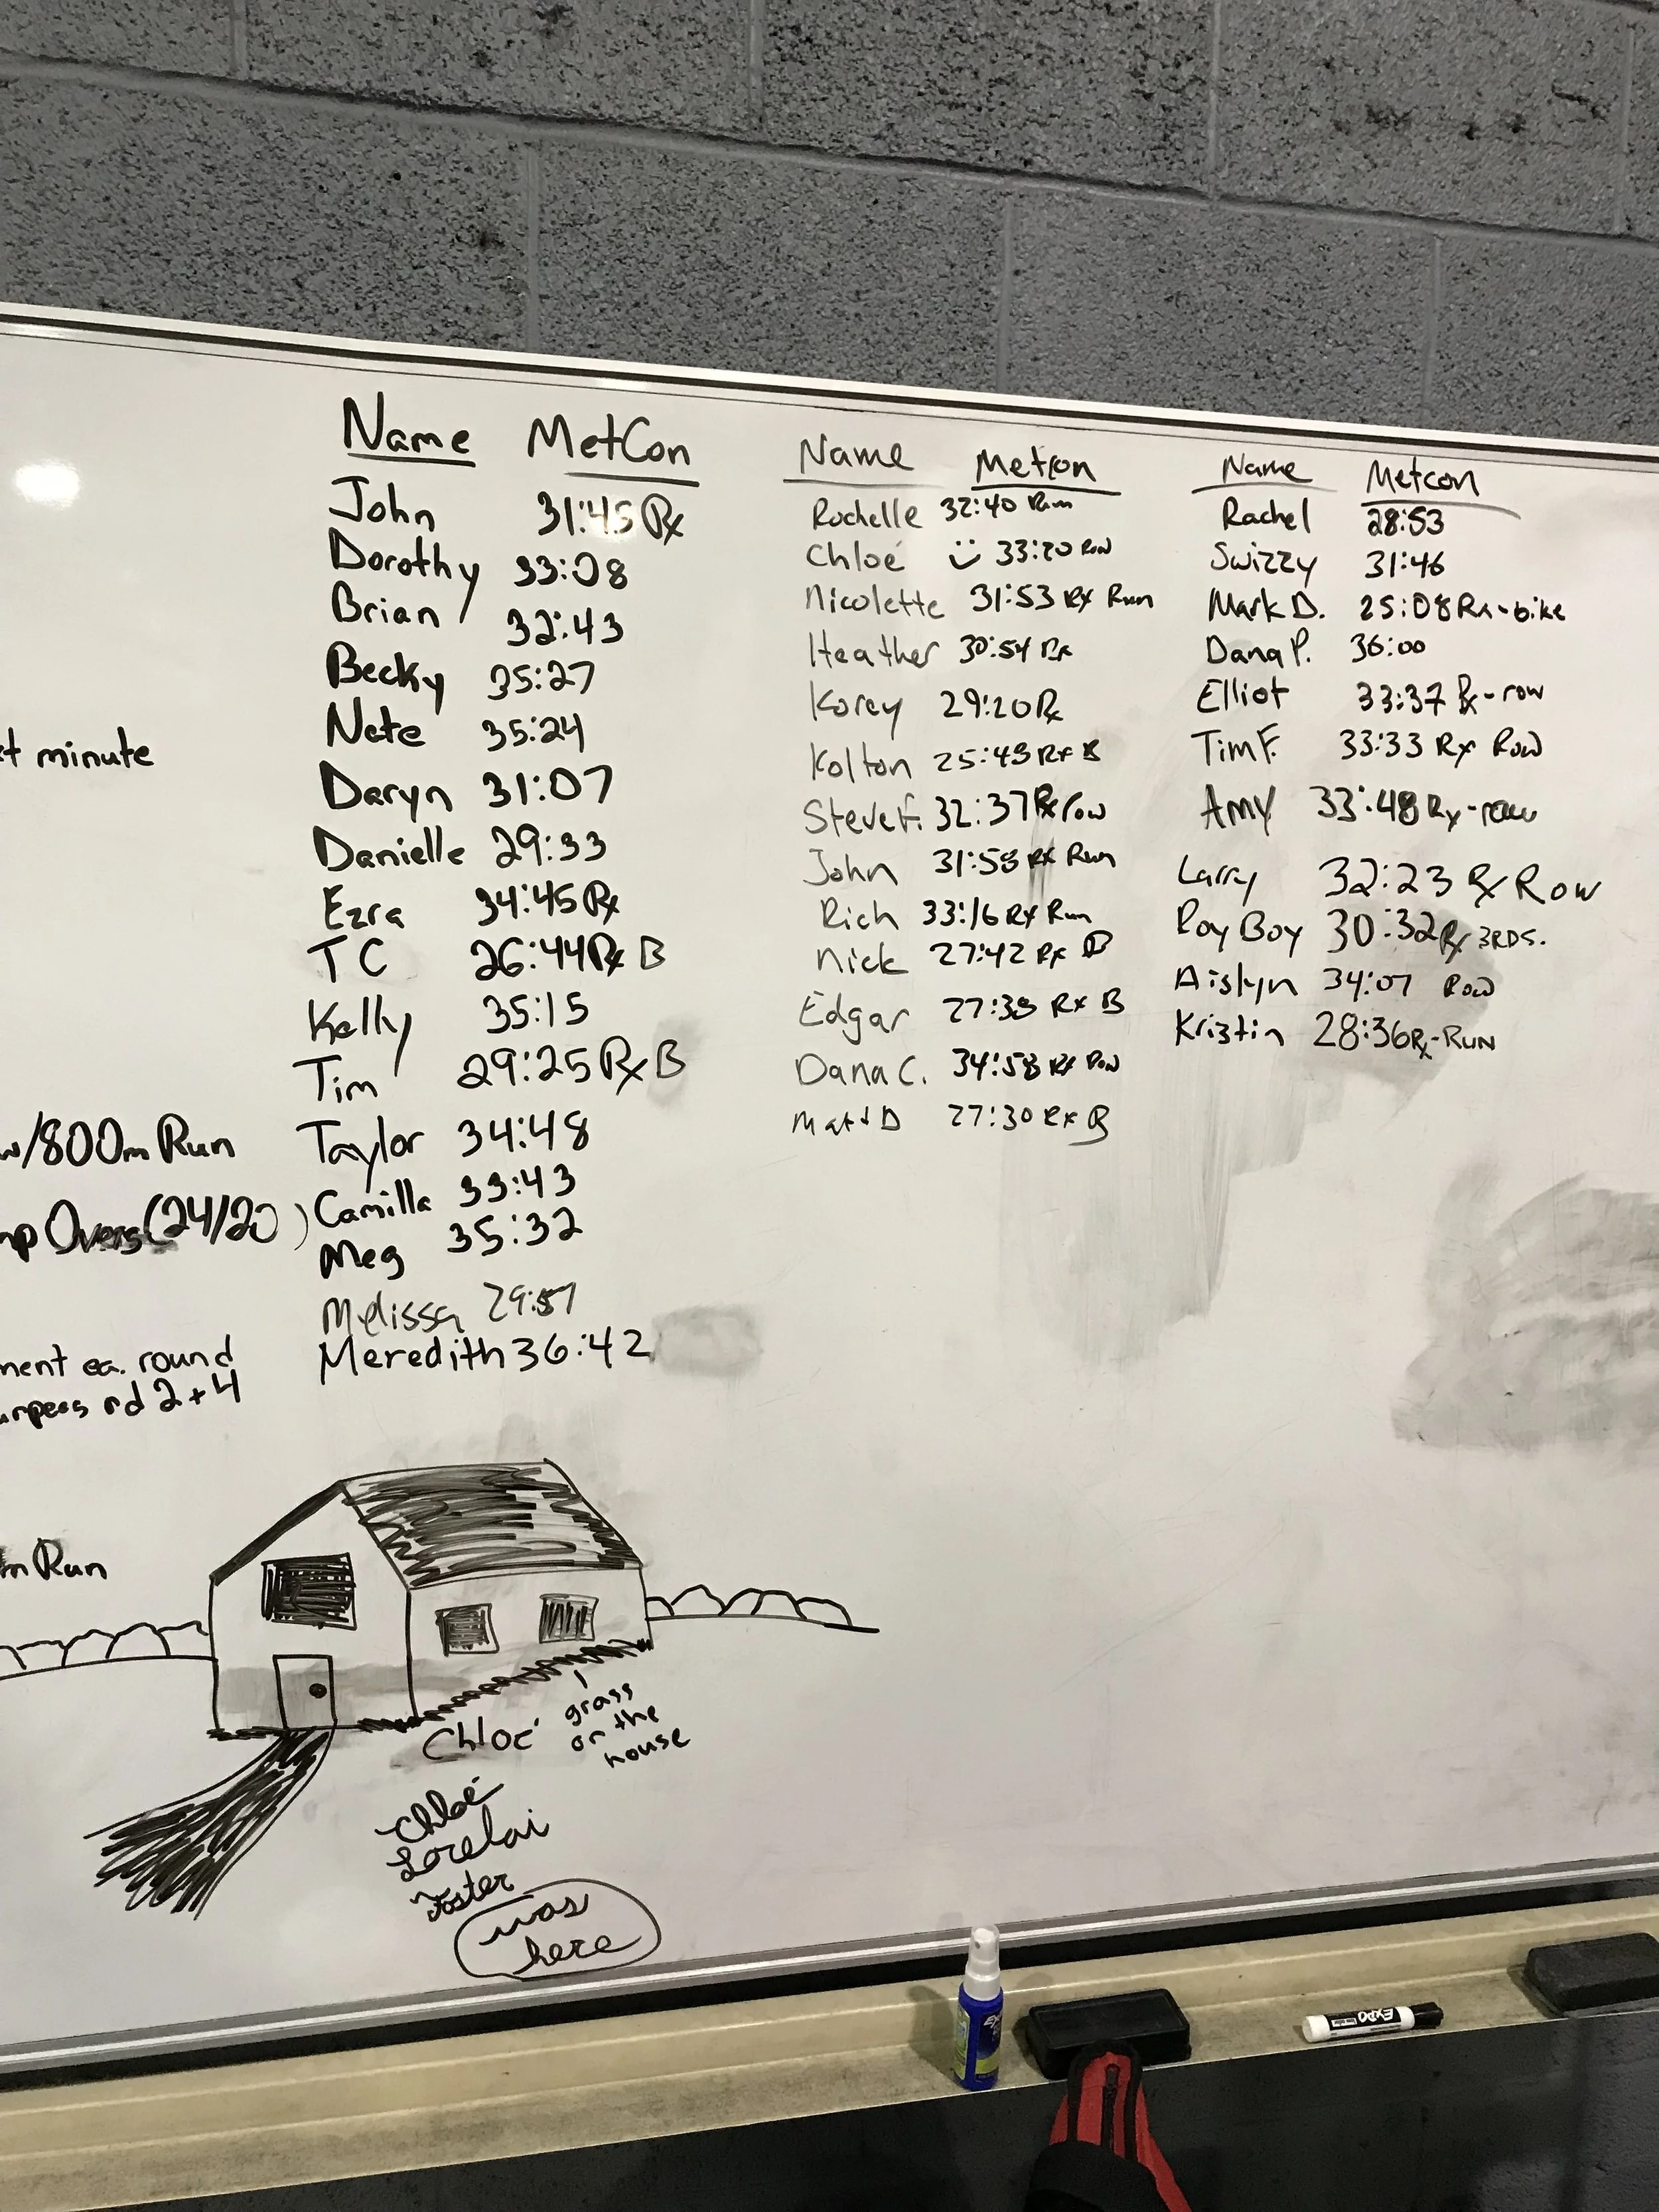 Name MetCon
John 31:45 Rx
Dorothy 33:08
Brian 32:43
Becky 35:27
Nate 35:24
Daryn 31:07
Danielle 29:33
Ezra 34:45 Rx
TC 26:44 Rx B
Kelly 35:15
Tim 29:25 Rx B
Taylor 34:48
Camilla 33:43
Meg 35:32
Melissa 29:57
Meredith 36:42
Name Metcon
Rochelle 32:40 Run
Chloé 33:20 Row
Nicolette 31:53 Rx Run
Heather 30:54 Rx
Korey 29:20 Rx
Kolton 25:43 Rx B
Steve F. 32:37 Rx row
John 31:58 Rx Run
Rich 33:16 Rx Run
Nick 27:42 Rx B
Edgar 27:38 Rx B
Dana C. 34:58 Rx Row
Matt D 27:30 Rx B
Name Metcon
Rachel 28:53
Swizzy 31:46
Mark D. 25:08 Rx-bike
Dana P. 36:00
Elliot 33:37 Rx-row
Tim F. 33:33 Rx Row
Amy 33:48 Rx-row
Larry 32:23 Rx Row
Roy Boy 30:32 Rx 3RDS.
Aislyn 34:07 Row
Kristin 28:36 Rx-Run
minute
w/800m Run
Overs (24/20)
ea. round
rd 2+4
m Run
grass
on the
house
Chloé
Chloé
Lorelai
Foster
was
here
EXPO